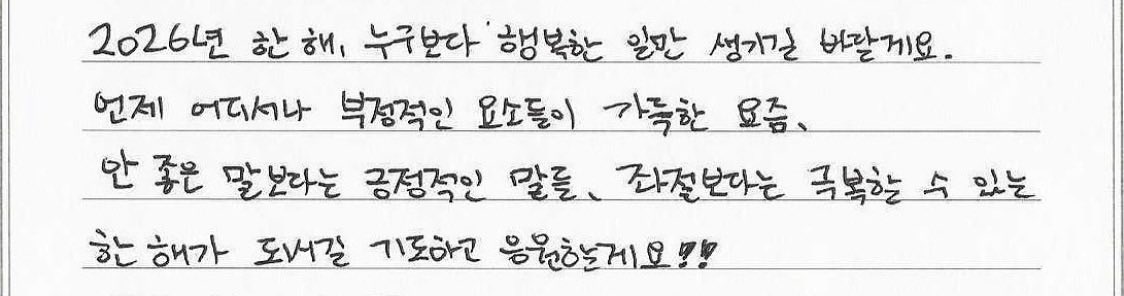 2026년 한 해, 누구보다 행복한 일만 생기길 바랄게요.
언제 어디서나 부정적인 요소들이 가득한 요즘,
안 좋은 말보다는 긍정적인 말들, 좌절보다는 극복하는 수 있는
한 해가 되시길 기도하고 응원할게요!!